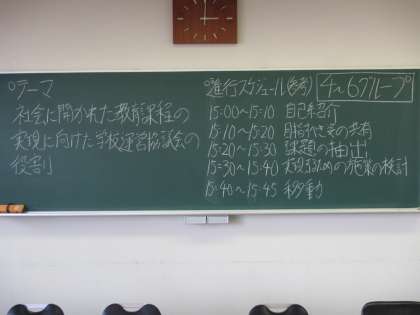 ○テーマ
社会に開かれた教育課程の
実現に向けた学校運営協議会の
役割
○進行スケジュール(参考)
4~6グループ
15:00~15:10 自己紹介
15:10~15:20 目指すべき姿の共有
15:20~15:30 課題の抽出
15:30~15:40 実現するための施策の検討
15:40~15:45 移動